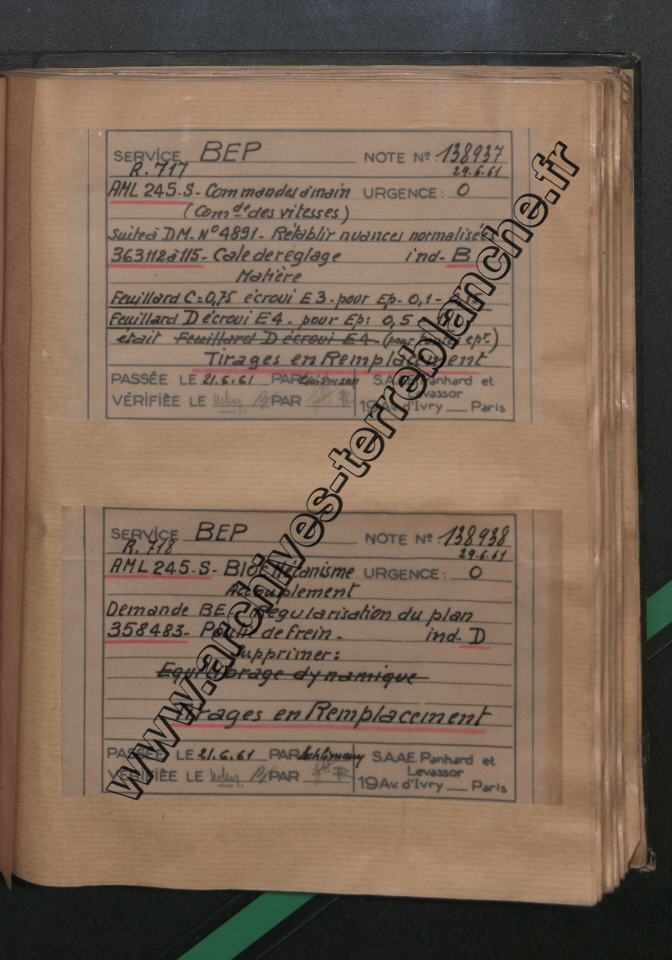 SERVICE BEP NOTE Nº 138937
R.717 29.6.61
AML 245.S - Commandes à main URGENCE: 0
(Comde des vitesses)
Suite à DM - Nº 4891 - Rétablir nuances normalisées
363112 à 115 - Cale de réglage ind - B
Matière
Feuillard C=0,75 écroui E3 - pour Ep - 0,1 -
Feuillard D écroui E4 - pour Ep: 0,5 -
était Feuillard D écroui E4 - (pour toute épr.)
Tirages en Remplacement
PASSÉE LE 21.6.61 PAR S.A.A.E. Panhard et
Levassor
VÉRIFIÉE LE PAR 19 Av. d'Ivry Paris
SERVICE BEP NOTE Nº 138938
R.718 29.6.61
AML 245.S - Bloc Mécanisme URGENCE: 0
Accouplement
Demande BE - Régularisation du plan
358483 - Poulie de frein - ind - D
Supprimer:
Equilibrage dynamique
Tirages en Remplacement
PASSÉE LE 21.6.61 PAR S.A.A.E. Panhard et
Levassor
VÉRIFIÉE LE PAR 19 Av. d'Ivry Paris
www.archives-terreblanche.fr